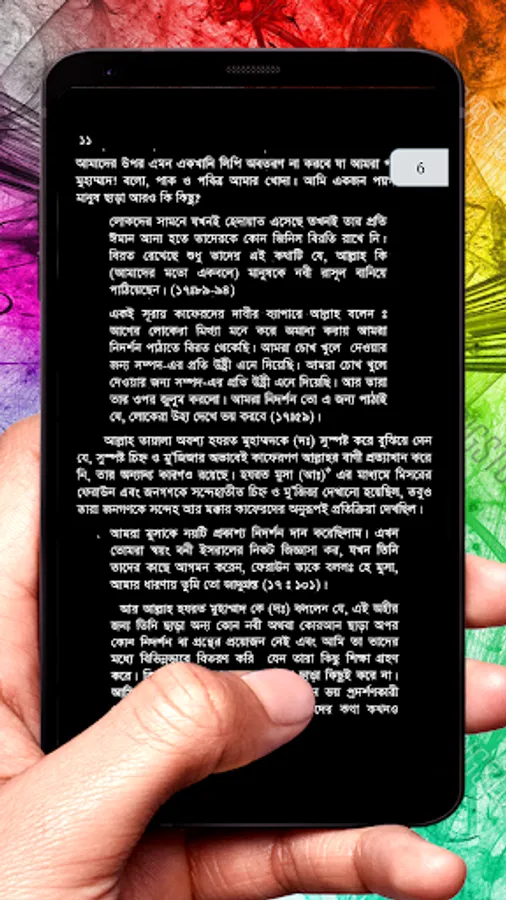 ১১
6
আমাদের উপর এমন একখানি লিপি অবতরণ না করবে যা আমরা
মুহাম্মাদ! বলো, পাক ও পবিত্র আমার খোদা। আমি একজন
মানুষ ছাড়া আরও কি কিছু?
লোকদের সামনে যখনই হেদায়াত এসেছে তখনই তার প্রতি
ঈমান আনা হতে তাদেরকে কোন জিনিস বিরতি রাখে নি।
বিরত রেখেছে শুধু তাদের এই কথাটি যে, আল্লাহ কি
(আমাদের মতো একবলে) মানুষকে নবী রাসূল বানিয়ে
পাঠিয়েছেন। (১৭ঃ৮৯-৯৪)
একই সূরায় কাফেরদের দাবীর ব্যাপারে আল্লাহ বলেন ঃ
আগের লোকেরা মিথ্যা মনে করে অমান্য করায় আমরা
নিদর্শন পাঠাতে বিরত থেকেছি। আমরা চোখ খুলে দেওয়ার
জন্য সম্পদ-এর প্রতি উষ্ট্রী এনে দিয়েছি। আমরা চোখ খুলে
দেওয়ার জন্য সম্পদ-এর প্রতি উষ্ট্রী এনে দিয়েছি। আর তারা
তার ওপর জুলুম করলো। আমরা নিদর্শন তো এ জন্য পাঠাই
যে, লোকেরা উহা দেখে ভয় করবে (১৭ঃ৫৯)।
আল্লাহ তায়ালা অবশ্য হযরত মুহাম্মদকে (দঃ) সুস্পষ্ট করে বুঝিয়ে দেন
যে, সুস্পষ্ট চিহ্ন ও মু'জিজার অভাবেই কাফেরগণ আল্লাহর বাণী প্রত্যাখান করে
নি, তার অন্যান্য কারণও রয়েছে। হযরত মুসা (আঃ) এর মাধ্যমে মিসরের
ফেরাউন এবং জনগণকে সন্দেহাতীত চিহ্ন ও মু'জিজা দেখানো হয়েছিল, তবুও
তারা জনগণকে সন্দেহ আর মক্কার কাফেরদের অনুরূপই প্রতিক্রিয়া দেখছিল।
আমরা মুসাকে নয়টি প্রকাশ্য নিদর্শন দান করেছিলাম। এখন
তোমরা স্বয়ং বনী ইসরালের নিকট জিজ্ঞাসা কর, যখন তিনি
তাদের কাছে আগমন করেন, ফেরাউন তাকে বললঃ হে মুসা,
আমার ধারণায় তুমি তো জাদুগ্রস্ত (১৭ ঃ ১০১)।
আর আল্লাহ হযরত মুহাম্মদ কে (দঃ) বললেন যে, এই অহীর
জন্য তিনি ছাড়া অন্য কোন নবী অথবা কোরআন ছাড়া অপর
কোন নিদর্শন বা গ্রন্থের প্রয়োজন নেই এবং আমি তা তাদের
মধ্যে বিভিন্নভাবে বিতরণ করি যেন তারা কিছু শিক্ষা গ্রহণ
করে। ছাড়া কিছুই করে না।
ভয় প্রদর্শণকারী
কথা কখনও